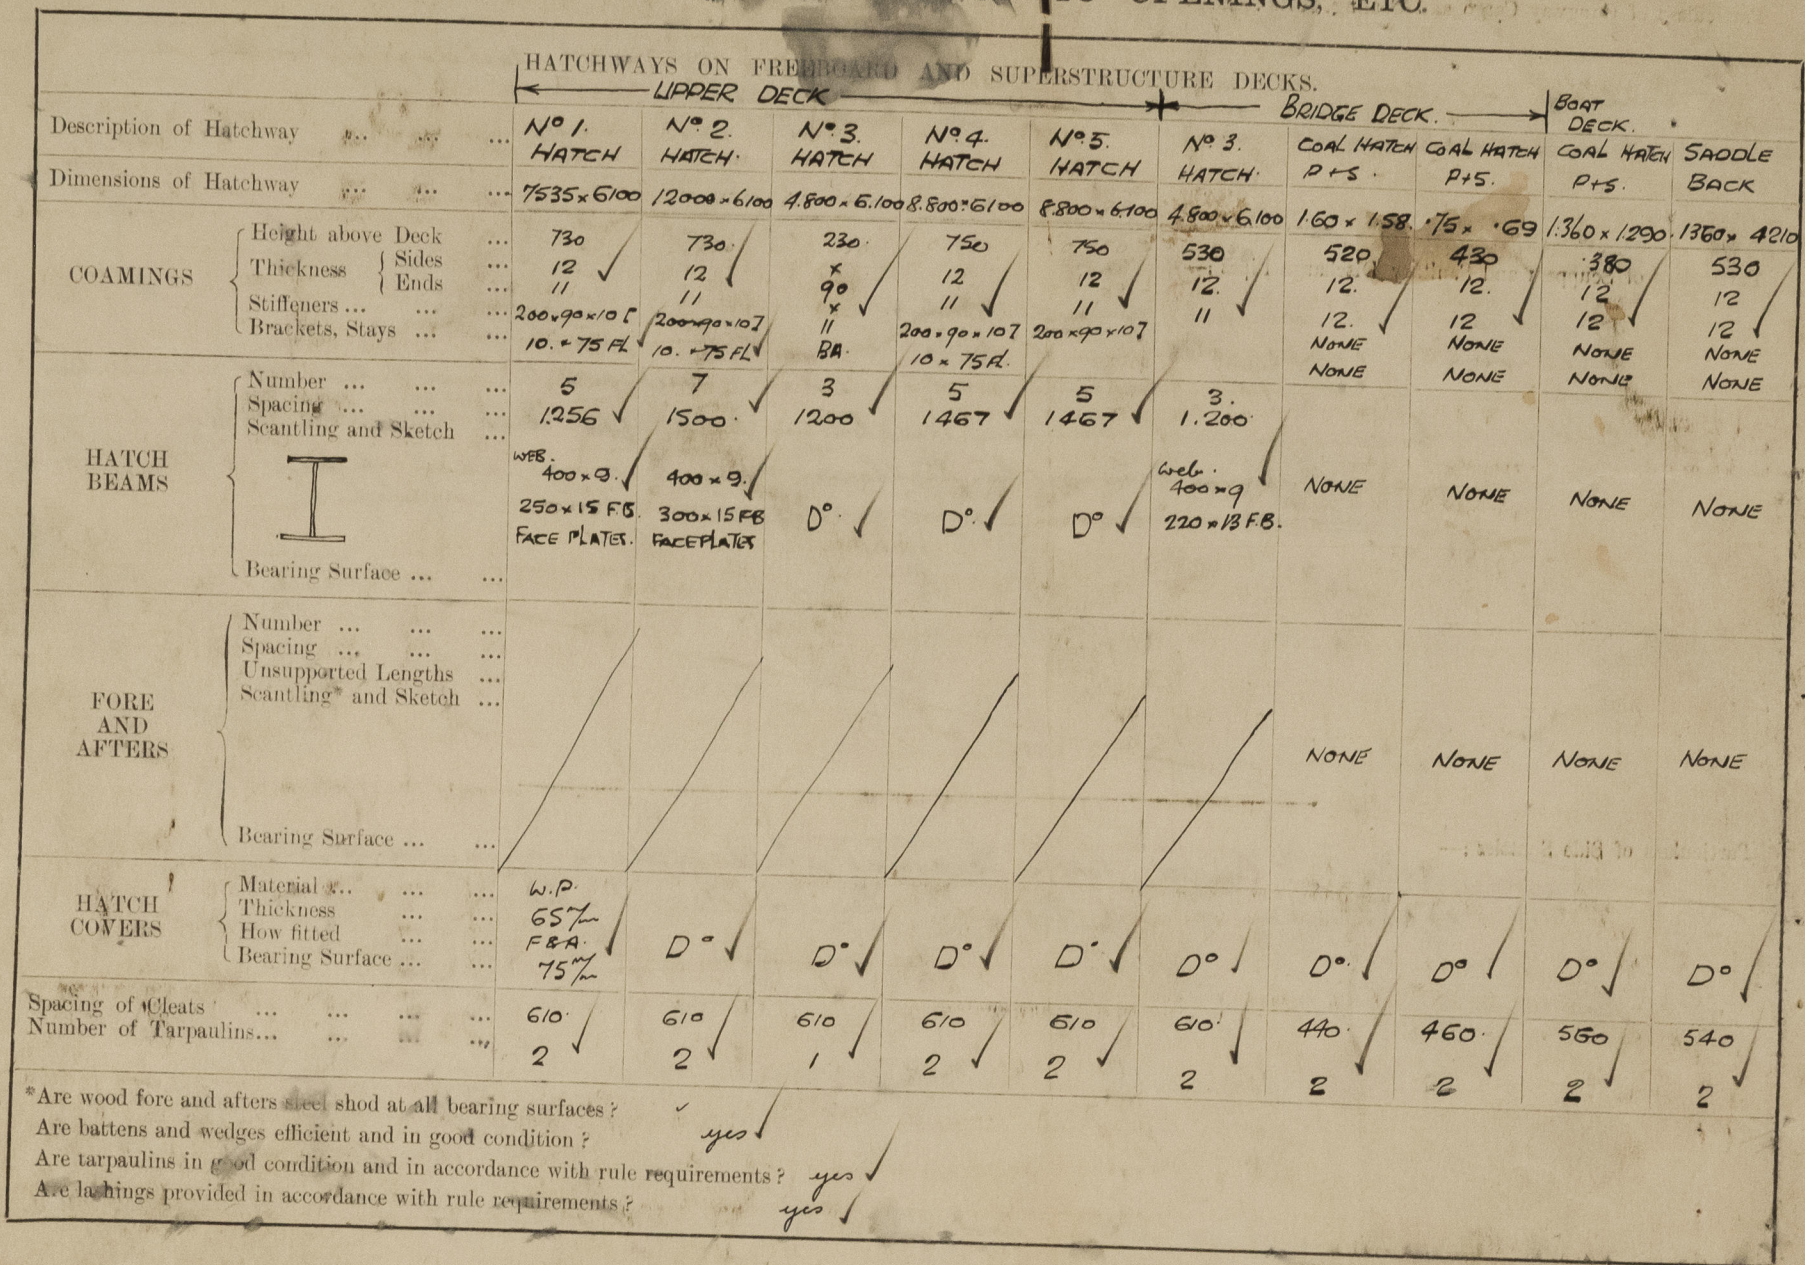 OPENINGS, ETC.
HATCHWAYS ON FREEBOARD AND SUPERSTRUCTURE DECKS.
UPPER DECK BRIDGE DECK. BOAT DECK.
Description of Hatchway ... ... ... No 1. HATCH No 2. HATCH. No 3. HATCH No 4. HATCH No 5. HATCH No 3. HATCH. COAL HATCH P+S. COAL HATCH P+S. COAL HATCH P+S. SADDLE BACK
Dimensions of Hatchway ... ... ... 7535 x 6100 12000 x 6100 4.800 x 6.100 8.800 x 6100 8.800 x 6.100 4.800 x 6.100 1.60 x 1.58. .75 x .69 1.360 x 1.290. 1360 x 4210
COAMINGS
Height above Deck ... 730 730. 230. 750 750 530 520 430 380 530
Thickness { Sides ... 12 12 x 12 12 12. 12. 12. 12 12
Ends ... 11 11 90 11 11 11 12. 12 12 12
Stiffeners ... ... ... 200x90x10 [ 200x90x10] x 11 200x90x10] 200x90x10] NONE NONE NONE NONE
Brackets, Stays ... ... 10. x 75 FL 10. x 75 FL BA. 10 x 75 FL. NONE NONE NONE NONE
HATCH BEAMS
Number ... ... ... 5 7 3 5 5 3.
Spacing ... ... ... 1.256 1500. 1200 1467 1467 1.200
Scantling and Sketch ...
WEB. 400 x 9. 400 x 9. Do. Do. Do web. 400 x 9 NONE NONE NONE NONE
250 x 15 F.B. 300 x 15 FB 220 x 13 F.B.
FACE PLATES. FACE PLATES
Bearing Surface ... ...
FORE AND AFTERS
Number ... ... ...
Spacing ... ... ...
Unsupported Lengths ...
Scantling* and Sketch ...
NONE NONE NONE NONE
Bearing Surface ... ...
HATCH COVERS
Material ... ... ... W.P.
Thickness ... ... 65 m/m
How fitted ... ... F & A. Do Do Do Do Do Do. Do Do Do
Bearing Surface ... ... 75 m/m
Spacing of Cleats ... ... ... ... 610. 610 610 610 610 610. 440. 460. 560 540
Number of Tarpaulins... ... ... ... 2 2 1 2 2 2 2 2 2 2
*Are wood fore and afters steel shod at all bearing surfaces ?
Are battens and wedges efficient and in good condition ? yes
Are tarpaulins in good condition and in accordance with rule requirements ? yes
Are lashings provided in accordance with rule requirements ? yes